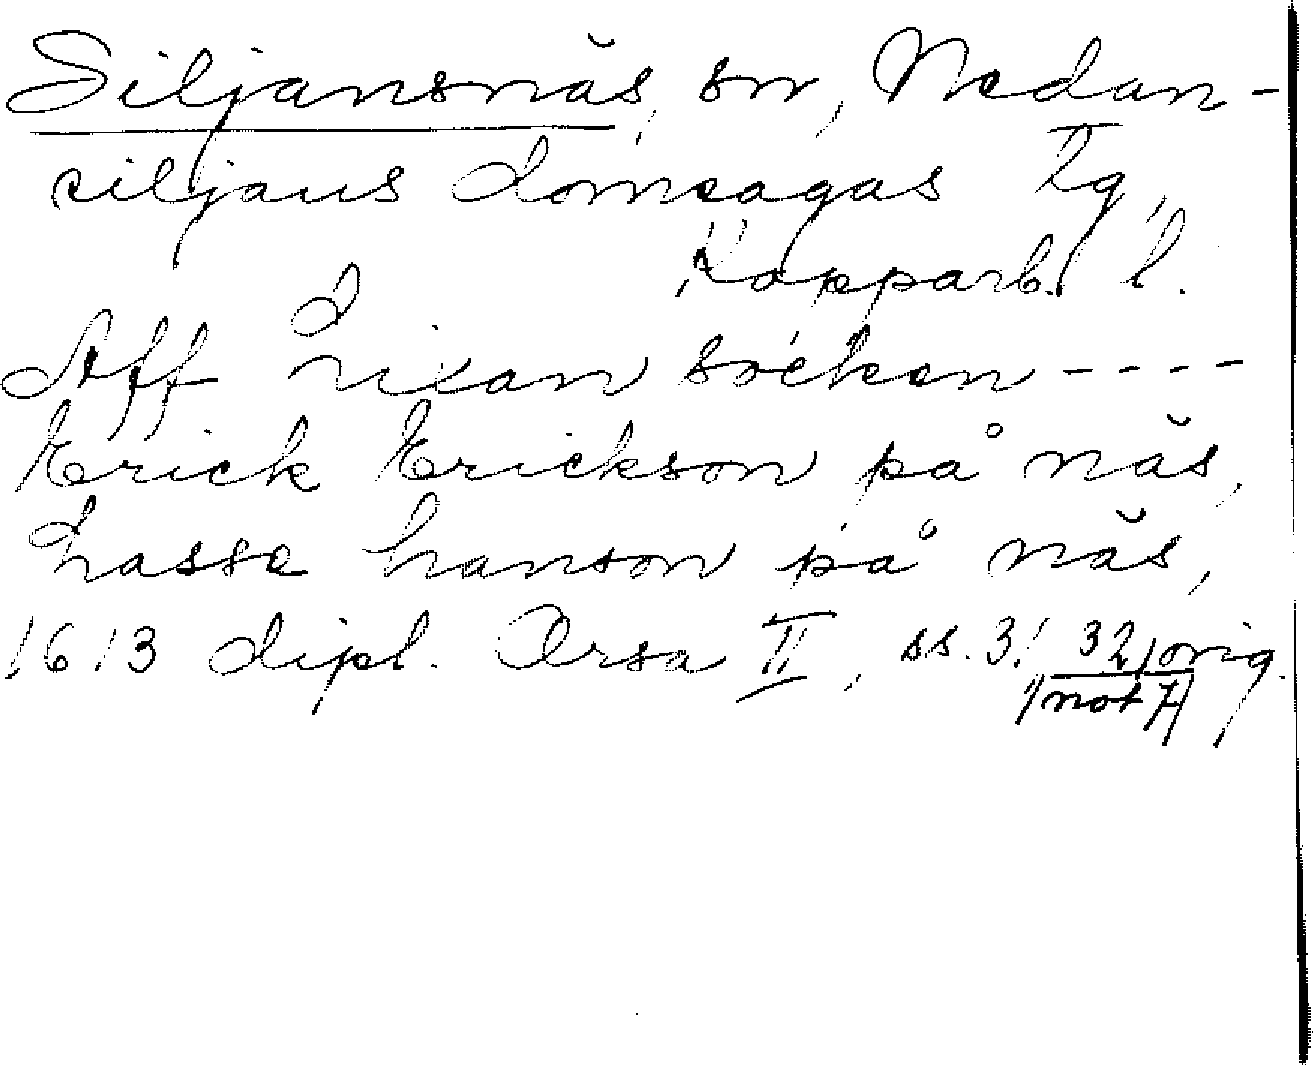 Siljansnäs, sn, Nedan-
siljans domsagas tg,
Kopparb. l.
Aff Lixan söcken ----
Erick Erickson på näs,
Lasse hanson på näs,
1613 dipl. Orsa II, ss. 31 32, orig.
not 7